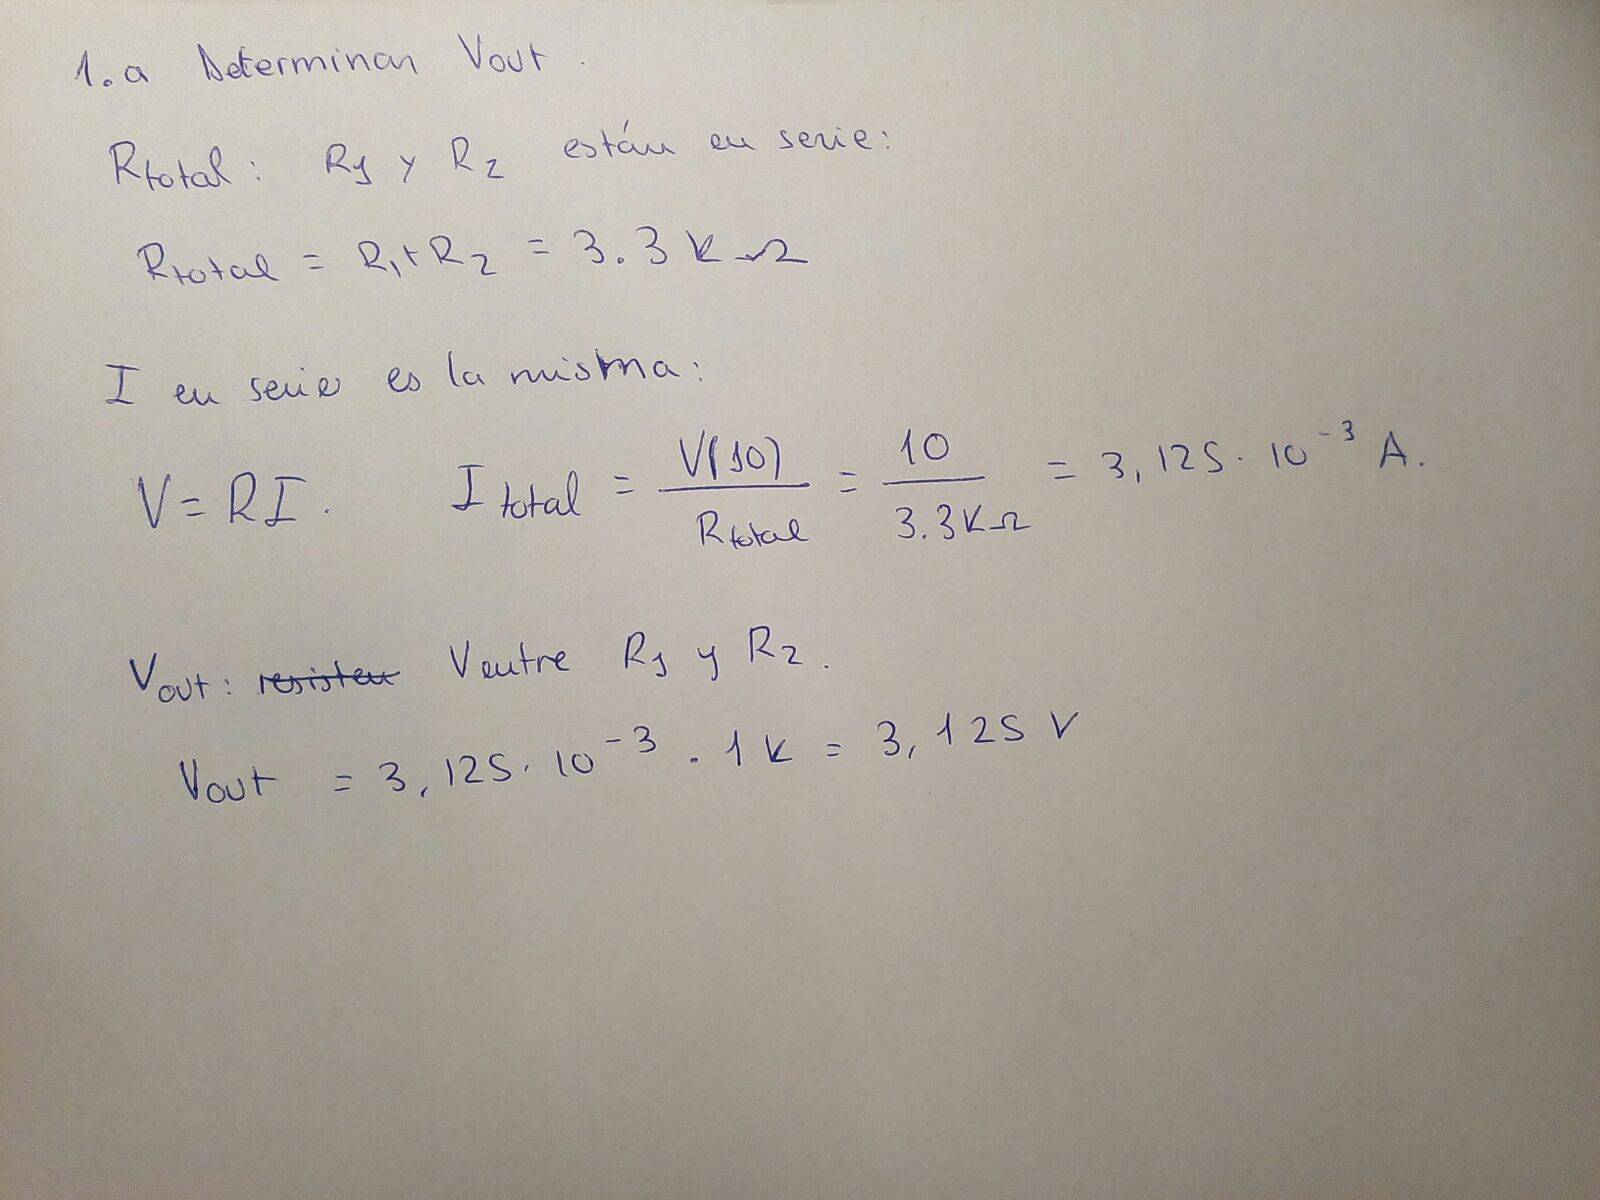 1.a Determinar Vout.
Rtotal: R1 y R2 están en serie:
Rtotal = R1+R2 = 3.3 KΩ
I en serie es la misma:
V=RI. Itotal = V(10)/Rtotal = 10/3.3KΩ = 3,125·10⁻³ A.
Vout: resisten V entre R1 y R2.
Vout = 3,125·10⁻³ . 1K = 3,125 V